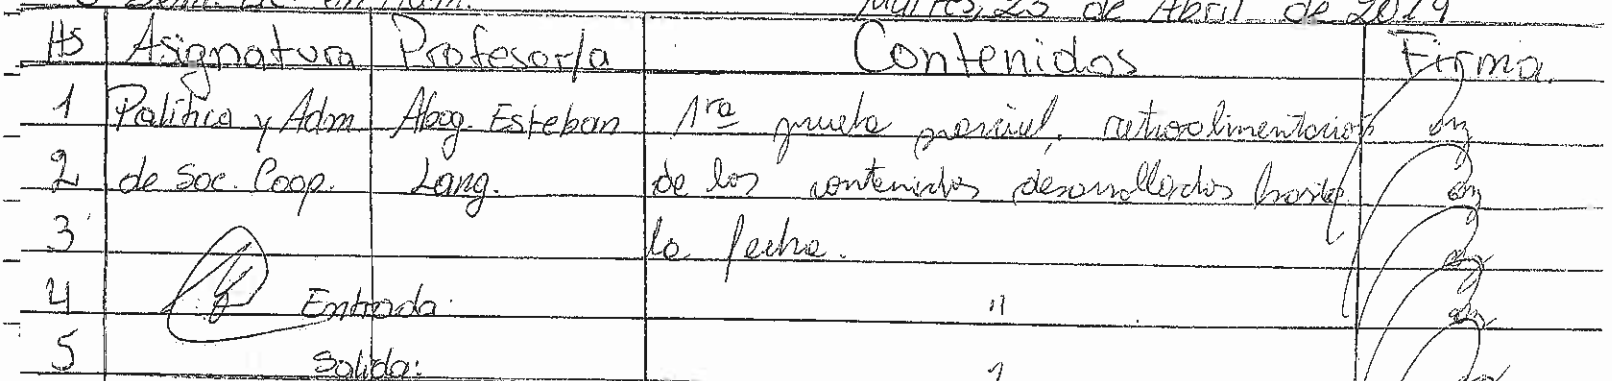 Martes, 23 de Abril de 2019
Hs Asignatura Profesor/a Contenidos Firma
1 Política y Adm Abog. Esteban 1ra prueba parcial, retroalimentación
2 de Soc. Coop. Lang. de los contenidos desarrollados hasta
3 la fecha.
4 Entrada: "
5 Salida: